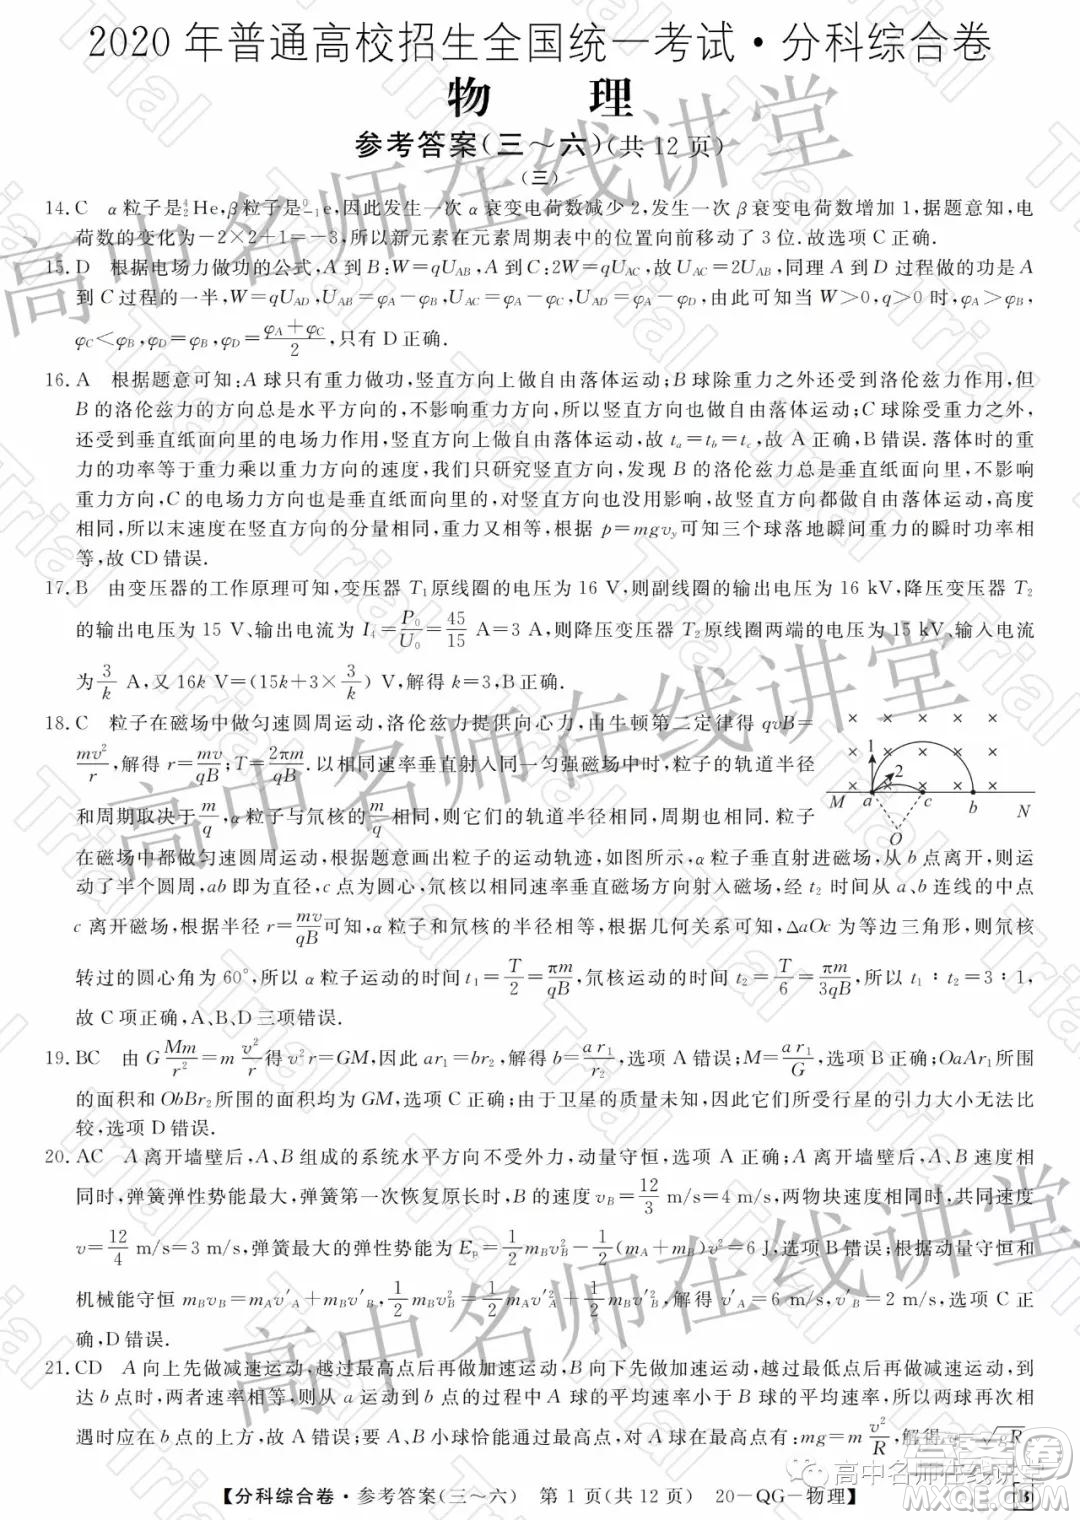 2020 年普通高校招生全国统一考试·分科综合卷
物 理
参考答案(三～六)(共 12 页)
(三)
14. C α粒子是⁴₂He,β粒子是⁰₋₁e,因此发生一次 α 衰变电荷数减少 2,发生一次 β 衰变电荷数增加 1,据题意知,电
荷数的变化为−2×2+1=−3,所以新元素在元素周期表中的位置向前移动了 3 位.故选项 C 正确.
15. D 根据电场力做功的公式,A 到 B:W=qU_AB,A 到 C:2W=qU_AC,故 U_AC=2U_AB,同理 A 到 D 过程做的功是 A
到 C 过程的一半,W=qU_AD,U_AB=φ_A−φ_B,U_AC=φ_A−φ_C,U_AD=φ_A−φ_D,由此可知当 W>0,q>0 时,φ_A>φ_B,
φ_C<φ_B,φ_D=φ_B,φ_D=(φ_A+φ_C)/2,只有 D 正确.
16. A 根据题意可知:A 球只有重力做功,竖直方向上做自由落体运动;B 球除重力之外还受到洛伦兹力作用,但
B 的洛伦兹力的方向总是水平方向的,不影响重力方向,所以竖直方向也做自由落体运动;C 球除受重力之外,
还受到垂直纸面向里的电场力作用,竖直方向上做自由落体运动,故 t_a=t_b=t_c,故 A 正确,B 错误.落体时的重
力的功率等于重力乘以重力方向的速度,我们只研究竖直方向,发现 B 的洛伦兹力总是垂直纸面方向的,不
影响重力方向,C 的电场力方向也是垂直纸面向里的,对竖直方向也没用影响,故竖直方向自由落体运动,高度
相同,所以末速度在竖直方向的分量相同,重力又相等,根据 p=mgv_y 可知三个球落地瞬间重力的瞬时功率相
等,故 CD 错误.
17. B 由变压器的工作原理可知,变压器 T₁ 原线圈的电压为 16 V,则副线圈的输出电压为 16 kV,降压变压器 T₂
的输出电压为 15 V、输出电流为 I₄=P₀/U₀=45/15 A=3 A,则降压变压器 T₂原线圈两端的电压为 15 kV、输入电流
为3/k A,又 16k V=(15k+3×3/k) V,解得 k=3,B 正确.
18. C 粒子在磁场中做匀速圆周运动,洛伦兹力提供向心力,由牛顿第二定律得 qvB=
mv²/r,解得 r=mv/qB;T=2πm/qB.以相同速率垂直射入同一匀强磁场中时,粒子的轨道半径
和周期取决于m/q,α粒子与氘核的m/q相同,则它们的轨道半径与周期均相同.粒子
在磁场中都做匀速圆周运动,根据题意画出粒子的运动轨迹,如图所示,α粒子垂直射进磁场,从 b 点离开,则运
动了半个圆周,ab即为直径,c 点为圆心,氘核以相同速率垂直磁场方向射入磁场,经 t₂ 时间从 a、b 连线的中点
c 离开磁场,根据半径 r=mv/qB可知,α粒子和氘核的半径相等,根据几何关系可知,△aOc 为等边三角形,则氘核
转过的圆心角为 60°,所以 α粒子运动的时间 t₁=T/2=πm/qB,氘核运动的时间 t₂=T/6=πm/3qB,所以 t₁∶t₂=3∶1,
故 C 项正确,A、B、D 三项错误.
1 2 M a c b N O
19. BC 由 G Mm/r²=m v²/r得 v²r=GM,因此 ar₁=br₂,解得 b=ar₁/r₂,选项 A 错误;M=ar₁/G,选项 B 正确;OaAr₁所围
的面积和 ObBr₂所围的面积均为 GM,选项 C 正确;由于卫星的质量未知,因此它们所受行星的引力大小无法比
较,选项 D 错误.
20. AC A 离开墙壁后,A、B 组成的系统水平方向不受外力,动量守恒,选项 A 正确;A 离开墙壁后,A、B 速度相
同时,弹簧弹性势能最大,弹簧第一次恢复原长时,B 的速度 v_B=12/3 m/s=4 m/s,两物块速度相同时,共同速度
v=12/4 m/s=3 m/s,弹簧最大的弹性势能为 E_p=1/2 m_Bv²_B−1/2(m_A+m_B)v²=6 J,选项 B 错误;根据动量守恒和
机械能守恒 m_Bv_B=m_Av′_A+m_Bv′_B,1/2 m_Bv²_B=1/2 m_Av′²_A+1/2 m_Bv′²_B,解得 v′_A=6 m/s,v′_B=2 m/s,选项 C 正
确,D 错误.
21. CD A 向上先做减速运动,越过最高点后再做加速运动,B 向下先做加速运动,越过最低点后再做减速运动,到
达 b 点时,两者速率相等,则从 a 运动到 b 点的过程中 A 球的平均速率小于 B 球的平均速率,所以两球再次相
遇时应在 b 点的上方,故 A 错误;要 A、B 小球恰能通过最高点,对 A 球在最高点有:mg=m v²/R,解得 v=√gR
【分科综合卷·参考答案(三～六) 第 1 页(共 12 页) 20−QG−物理】
高中名师在线讲堂
MXQE.COM